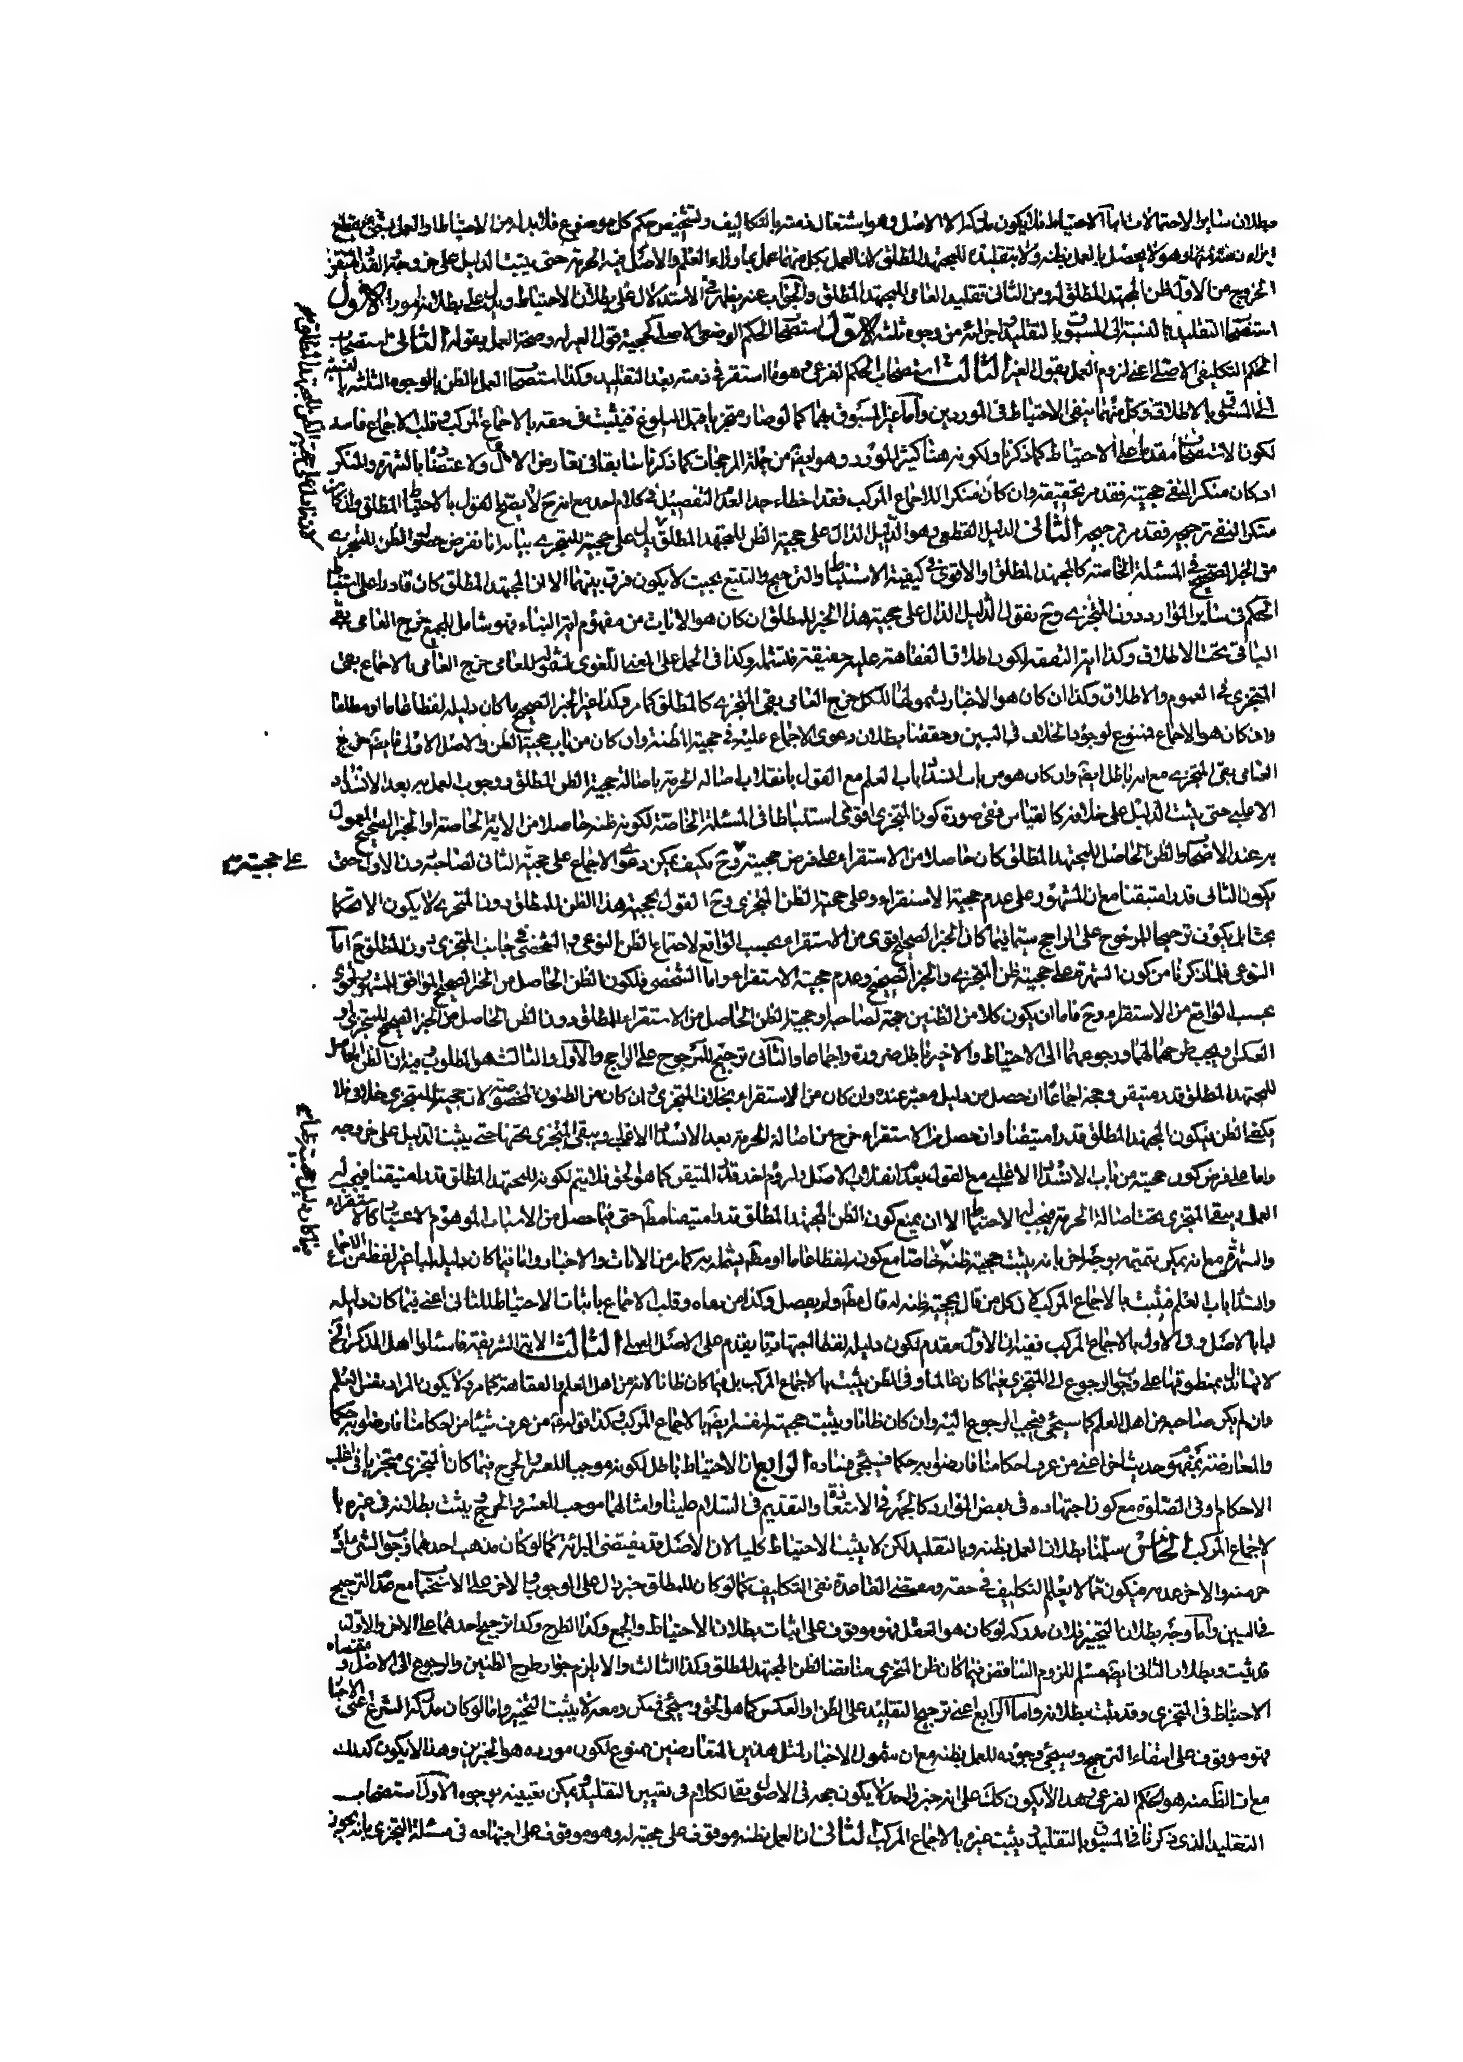 بطلان سائر الاحتمالات اما الاحتياط فلا يكون مدركه الا الاصل وهو اشتغال ذمته بالتكاليف وتشخيص حكم كل موضوع فلا بد له من الاحتياط والعمل بشئ يقطع
براءة ذمته منه وهو لا يحصل بالعمل بظنه ولا بتقليده للمجتهد المطلق لان العمل بكل منهما عمل بما وراء العلم والاصل فيه الحرمة حتى يثبت الدليل على خروجه القدر المتيقن
الخروج من الاول ظن المجتهد المطلق ومن الثانى تقليد العامى للمجتهد المطلق والجواب عنه يظهر فى الاستدلال على بطلان الاحتياط ويدل على بطلانه امور الاول
استصحاب التقليد بالنسبة الى المسبوق بالتقليد اجرائه من وجوه ثلثه الاول استصحاب الحكم الوضعى الاصلى كحجية قول الغير له وصحة العمل بقوله الثانى استصحاب
الحكم التكليفى الاصلى اعنى لزوم العمل بقول الغير الثالث استصحاب الحكم الفرعى وهو ما استقر فى ذمته بعد التقليد وكذا استصحاب العمل بالظن بالوجوه الثلثة بالنسبة
الى المسبوق بالاطلاق وكل منهما ينفى الاحتياط فى الموردين واما غير المسبوق بهما كما لو صار متجزيا قبل البلوغ فيثبت فى حقه بالاجماع المركب وقلب الاجماع فاسد
لكون الاستصحاب مقدما على الاحتياط كما ذكرنا ولكونه هنا كثير المورد وهو ايضا من جملة المرجحات كما ذكرنا سابقا فى تعارض الاصل ولاعتضاده بالشهرة والمنكر
ان كان منكرا لنفى حجيته فقد مر تحقيقه وان كان منكرا للاجماع المركب فقد اخطاء جدا لعدم التفصيل فى كلام احد مع انه ح لا يصح القول بالاحتياط المطلق وان كان
منكرا لنفى ترجيحه فقد مر ترجيحه الثانى الدليل القطعى وهو الدليل الدال على حجية الظن للمجتهد المطلق يدل على حجيته للمتجزى بيانه انا نفرض حصول الظن للمتجزى
من الخبر الصحيح فى المسئلة الخاصة كالمجتهد المطلق او الاقوى فى كيفية الاستنباط والترجيح والتتبع بحيث لا يكون فرق بينهما الا ان المجتهد المطلق كان قادرا على استنباط
الحكم فى سائر الموارد دون المتجزى وح نقول الدليل الدال على حجية هذا الخبر للمطلق ان كان هو الايات من مفهوم اية النباء فهو شامل للجميع خرج العامى بقى
الباقى تحت الاطلاق وكذا اية التفقه لكون اطلاق الفقاهة عليه حقيقة فتشمله وكذا فى الحمل على المعنى اللغوى لشموله للعامى خرج العامى بالاجماع بقى
المتجزى تحت العموم والاطلاق وكذا ان كان هو الاخبار بشمولها للكل خرج العامى بقى المتجزى كالمطلق كما مر وكذا غير الخبر الصحيح ما كان دليله لفظا عاما او مطلقا
وان كان هو الاجماع فممنوع لوجود الخلاف فى البين وحققنا بطلان دعوى الاجماع عليه فى حجية الظن وان كان من باب حجية الظن والاصل الاولى فايضا خرج
العامى بقى المتجزى مع انه باطل ايضا وان كان هو من باب انسداد باب العلم مع القول بانقلاب اصالة الحرمة باصالة حجية الظن المطلق ووجوب العمل به بعد الانسداد
الاغلبى حتى يثبت الدليل على خلافه كالقياس ففى صورة كون المتجزى اقوى استنباطا فى المسئلة الخاصة لكونه ظنه حاصلا من الاية الخاصة او الخبر الصحيح المعمول
به عند الاصحاب والظن الحاصل للمجتهد المطلق كان حاصلا من الاستقراء على فرض حجيته وح فكيف يمكن دعوى الاجماع على حجية الثانى لصاحبه دون الاول حتى
يكون الثانى قدرا متيقنا مع ان المشهور على عدم حجية الاستقراء وعلى حجية الظن المتجزى وح القول بحجية هذا الظن للمطلق دون المتجزى لا يكون الا تحكما
بحتا بل يكون ترجيحا للمرجوح على الراجح سيما فيما كان الخبر الصحيح اقوى من الاستقراء بحسب الواقع لاجتماع الظن النوعى والشخصى فى جانب المتجزى دون المطلق اما
النوعى فلما ذكرنا من كون الشهرة على حجية ظن المتجزى والخبر الصحيح وعدم حجية الاستقراء واما الشخصى فلكون الظن الحاصل من الخبر الصحيح الموافق للمشهور اقوى
بحسب الواقع من الاستقراء وح فاما ان يكون كلا من الظنين حجة لصاحبه او حجية الظن الحاصل من الاستقراء للمطلق دون الظن الحاصل من الخبر الصحيح للمتجزى او
العكس او يجب طرحهما لهما ورجوعهما الى الاحتياط والاخير باطل ضرورة واجماعا والثانى ترجيح للمرجوح على الراجح والاول والثالث هو المطلوب فيه ان الظن الحاصل
للمجتهد المطلق قدر متيقن وحجة اجماعا ان حصل من دليل معتبر عنده وان كان من الاستقراء بخلاف المتجزى وان كان من الظنون المخصوصة لان حجيته للمتجزى خلافى فلا
يكفى الظن فيكون المجتهد المطلق قدرا متيقنا وان حصل من الاستقراء خرج من اصالة الحرمة بعد الانسداد الاغلبى ويبقى المتجزى تحتها حتى يثبت الدليل على خروجه
واما على فرض كون حجيته من باب الانسداد الاغلبى مع القول بعدم انقلاب الاصل ولزوم اخذ قدر المتيقن كما هو الحق فلا يتم لكونه للمجتهد المطلق قدرا متيقنا فيجب له
العمل ويبقى المتجزى تحت اصالة الحرمة فيجب له الاحتياط الا ان يمنع كون الظن المجتهد المطلق قدرا متيقنا مطلقا حتى فيما حصل من الاسباب الموهوم الاعتبار كالاستقراء
والشهرة مع انه يمكن تتميمه بوجه اخر بانه يثبت حجية ظنه خاصا مع كونه لفظا عاما او مطلقا يشمله به كما مر من الايات والاخبار واما فيما كان دليله لبا غير لفظ من الاجماع
وانسداد باب العلم فيثبت بالاجماع المركب لان كل من قال بحجية ظنه له قال مطلقا ولم يفصل وكذا من نفاه وقلب الاجماع باثبات الاحتياط للثانى اعنى فيما كان دليله
لبا بالاصل وفى الاول بالاجماع المركب ففيه ان الاول مقدم لكون دليله لفظا اجتهاديا يقدم على الاصل العملى الثالث الاية الشريفة فاسئلوا اهل الذكر الخ
لانها تدل بمنطوقها على وجوب الرجوع الى المتجزى فيما كان عالما وفى الظن يثبت بالاجماع المركب بل فيما كان ظانا لانه من اهل العلم والفقاهة كما مر ولا يكون المراد نفس العلم
وان لم يكن صاحبه من اهل العلم كما سيجئ فيجب الرجوع اليه وان كان ظانا ويثبت حجيته لنفسه ايضا بالاجماع المركب وكذا قوله من عرف شيئا من احكامنا فارضوا به حكما
والمعارضة بمفهوم حديث اخر اعنى من عرف احكامنا فارضوا به حكما فسيجئ فساده الرابع ان الاحتياط باطل لكونه موجبا للعسر والحرج فيما كان المتجزى متجزيا فى اغلب
الاحكام وفى الصلوة مع كون اجتهاده فى بعض الموارد كالجهر فى الاستعاذة والتقديم فى السلام علينا وامثالهما موجب العسر والحرج يثبت بطلانه فى غيره با
لاجماع المركب الخامس سلمنا بطلان العمل بظنه وبالتقليد لكن لا يثبت الاحتياط كليا لان الاصل قد يقتضى البرائة كما لو كان مذهب احدهما وجوب الشئ والاخر
حرمته والاخر عدمه فيكون مما لا يعلم التكليف فى حقه ومقتضى القاعدة نفى التكليف كما لو كان للمطلق خبر دل على الوجوب والاخر على الاستحباب مع عدم الترجيح
فى البين واما وجه بطلان التخيير فلان مدركه لو كان هو العقل فهو موقوف على اثبات بطلان الاحتياط والجمع وكذا الطرح وكذا ترجيح احدهما على الاخر والاول
قد ثبت وبطلان الثانى ايضا مسلم للزوم التناقض فيما كان ظن المتجزى مناقضا لظن المجتهد المطلق وكذا الثالث والا يلزم جواز طرح الظنين والرجوع الى الاصل ومقتضاه
الاحتياط فى المتجزى وقد ثبت بطلانه واما الرابع اعنى ترجيح التقليد على الظن او العكس كما هو الحق وسيجئ فممكن ومعه لا يثبت التخيير واما لو كان مدركه الشرع اعنى الاخبار
فهو موقوف على انتفاء الترجيح وسيجئ وجوده للعمل بظنه مع ان شمول الاخبار لمثل هذين المتعارضين ممنوع لكون مورده هو الخبرين وهذا لا يكون كذلك
مع ان الظن منه هو الحكم الفرعى وهذا لا يكون كك على انه خبر واحد لا يكون حجة فى الاصول بقى الكلام فى تعيين التقليد ويمكن تعيينه بوجوه الاول استصحاب
التقليد الذى ذكرنا فى المسبوق بالتقليد ويثبت غيره بالاجماع المركب الثانى ان العمل بظنه موقوف على حجيته له وهو موقوف على اجتهاده فى مسئلة التجزى بانه يجوز
على حجيته